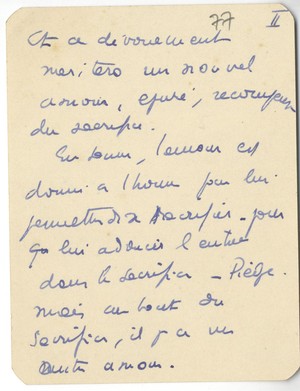 77 II
Et ce dévouement
méritera un nouvel
amour, épuré, récompense
du sacrifice.
En somme, l'amour est
donné à l'homme pour lui
permettre de se sacrifier – pour
lui adoucir l'entrée
dans le sacrifice – Piège.
mais au bout du
sacrifice, il y a un
autre amour.